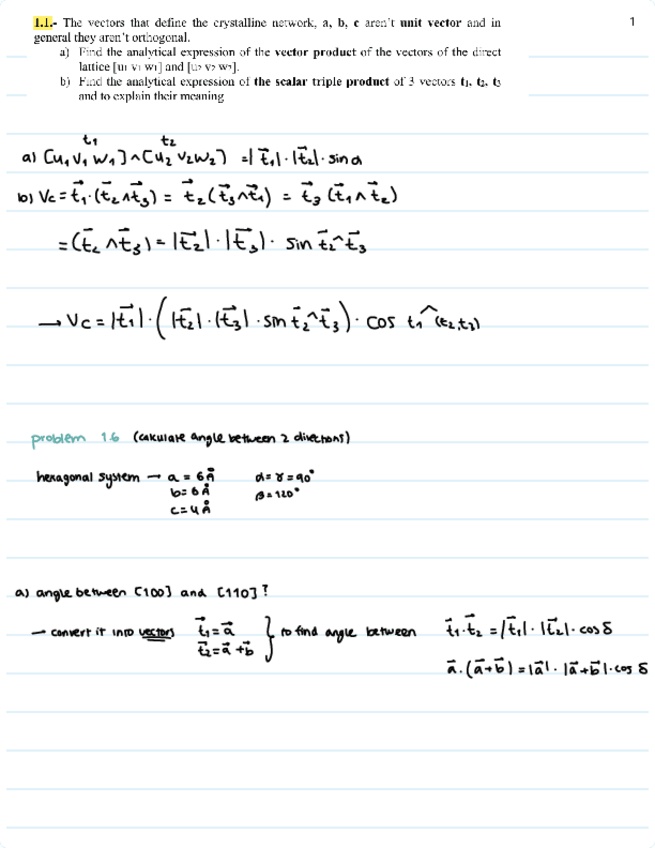 1.1.- The vectors that define the crystalline network, a, b, c aren't unit vector and in
1
general they aren't orthogonal.
a) Find the analytical expression of the vector product of the vectors of the direct
lattice [u₁ v₁ w₁] and [u₂ v₂ w₂].
b) Find the analytical expression of the scalar triple product of 3 vectors t₁, t₂, t₃
and to explain their meaning
t₁ t₂
a) [u₁ v₁ w₁] ∧ [u₂ v₂ w₂] = |t⃗₁| · |t⃗₂| · sin α
b) Vc = t⃗₁ · (t⃗₂ ∧ t⃗₃) = t⃗₂ (t⃗₃ ∧ t⃗₁) = t⃗₃ (t⃗₁ ∧ t⃗₂)
= (t⃗₂ ∧ t⃗₃) = |t⃗₂| · |t⃗₃| · sin t⃗₂^t⃗₃
→ Vc = |t⃗₁| · (|t⃗₂| · |t⃗₃| · sin t⃗₂^t⃗₃) · cos t₁^(t₂,t₃)
problem 1.6 (calculate angle between 2 directions)
hexagonal system → a = 6Å α = γ = 90°
b = 6Å β = 120°
c = 4Å
a) angle between [100] and [110]?
→ convert it into vectors t⃗₁ = a⃗ } to find angle between t⃗₁ · t⃗₂ = |t⃗₁| · |t⃗₂| · cos δ
t⃗₂ = a⃗ + b⃗ a⃗ · (a⃗ + b⃗) = |a⃗| · |a⃗ + b⃗| · cos δ